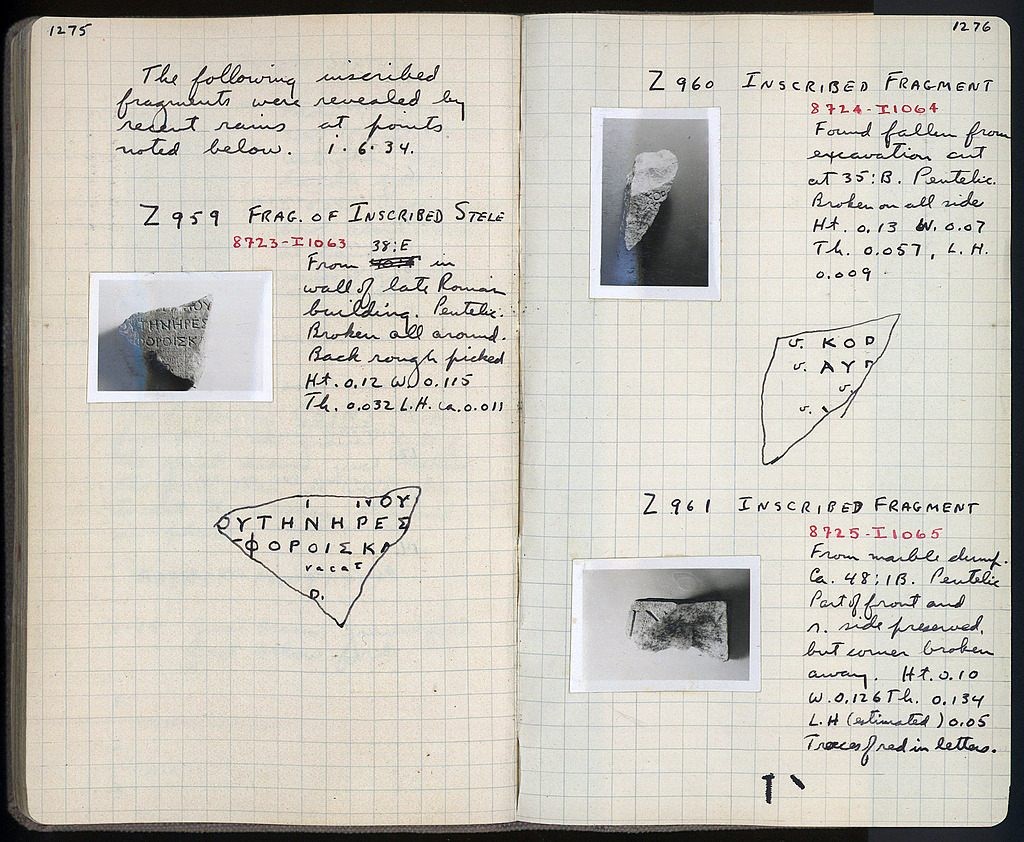 1275
The following inscribed
fragments were revealed by
recent rains at points
noted below. 1.6.34.
Z 959 FRAG. OF INSCRIBED STELE
8723-I1063
38:E
From in
wall of late Roman
building. Pentelic.
Broken all around.
Back rough picked
Ht. 0.12 W. 0.115
Th. 0.032 L.H. ca. 0.011
ΟΥ
ΟΥΤΗΝΗΡΕΣ
ΦΟΡΟΙΣΚ
vacat
1276
Z 960 INSCRIBED FRAGMENT
8724-I1064
Found fallen from
excavation cut
at 35:B. Pentelic.
Broken on all side
Ht. 0.13 W. 0.07
Th. 0.057, L.H.
0.009
v. ΚΟΡ
v. ΑΥΓ
v.
v.
Z 961 INSCRIBED FRAGMENT
8725-I1065
From marble dump.
Ca. 48:IB. Pentelic
Part of front and
r. side preserved,
but corner broken
away. Ht. 0.10
W. 0.126 Th. 0.134
L.H (estimated) 0.05
Traces of red in letters.